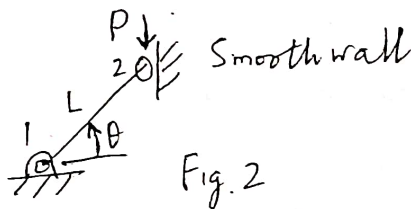 P
2 Smooth wall
L
1 θ
Fig. 2